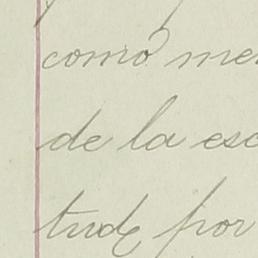 como me
de la esc
tud por